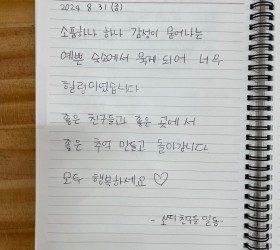 2024. 8. 31 (금)
소품하나 하나 감성이 묻어나는
예쁜 숙소에서 묵게 되어 너무
힐링이었습니다
좋은 친구들과 좋은 곳에서
좋은 추억 만들고 돌아갑니다
모두 행복하세요 ♡
- 쏘띠친구들 일동 -